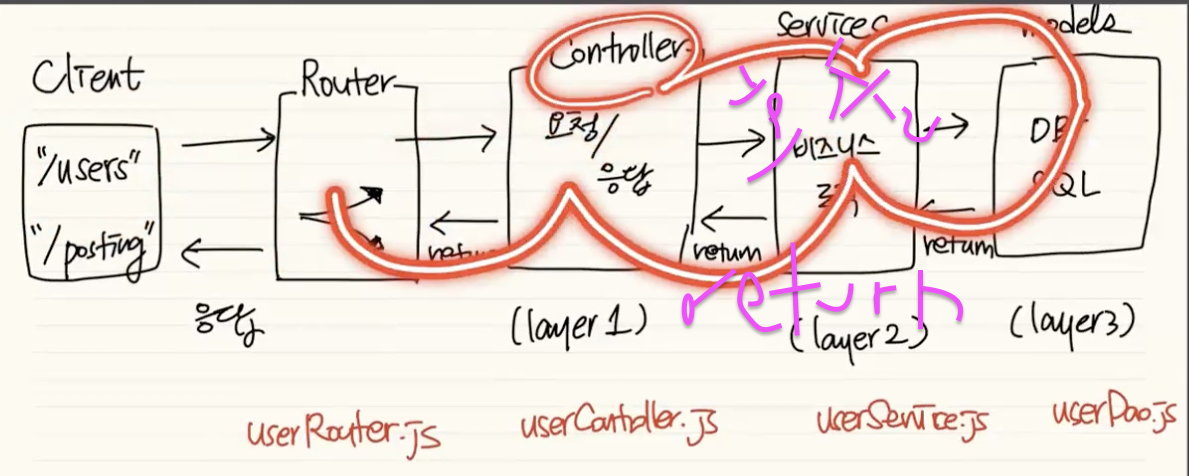 Client
Router
Controller
Services
models
"/users"
"/posting"
요청/
응답
비즈니스
로직
DB
SQL
return
return
return
return
응답
(layer 1)
(layer 2)
(layer 3)
userRouter.js
userController.js
userService.js
userDao.js